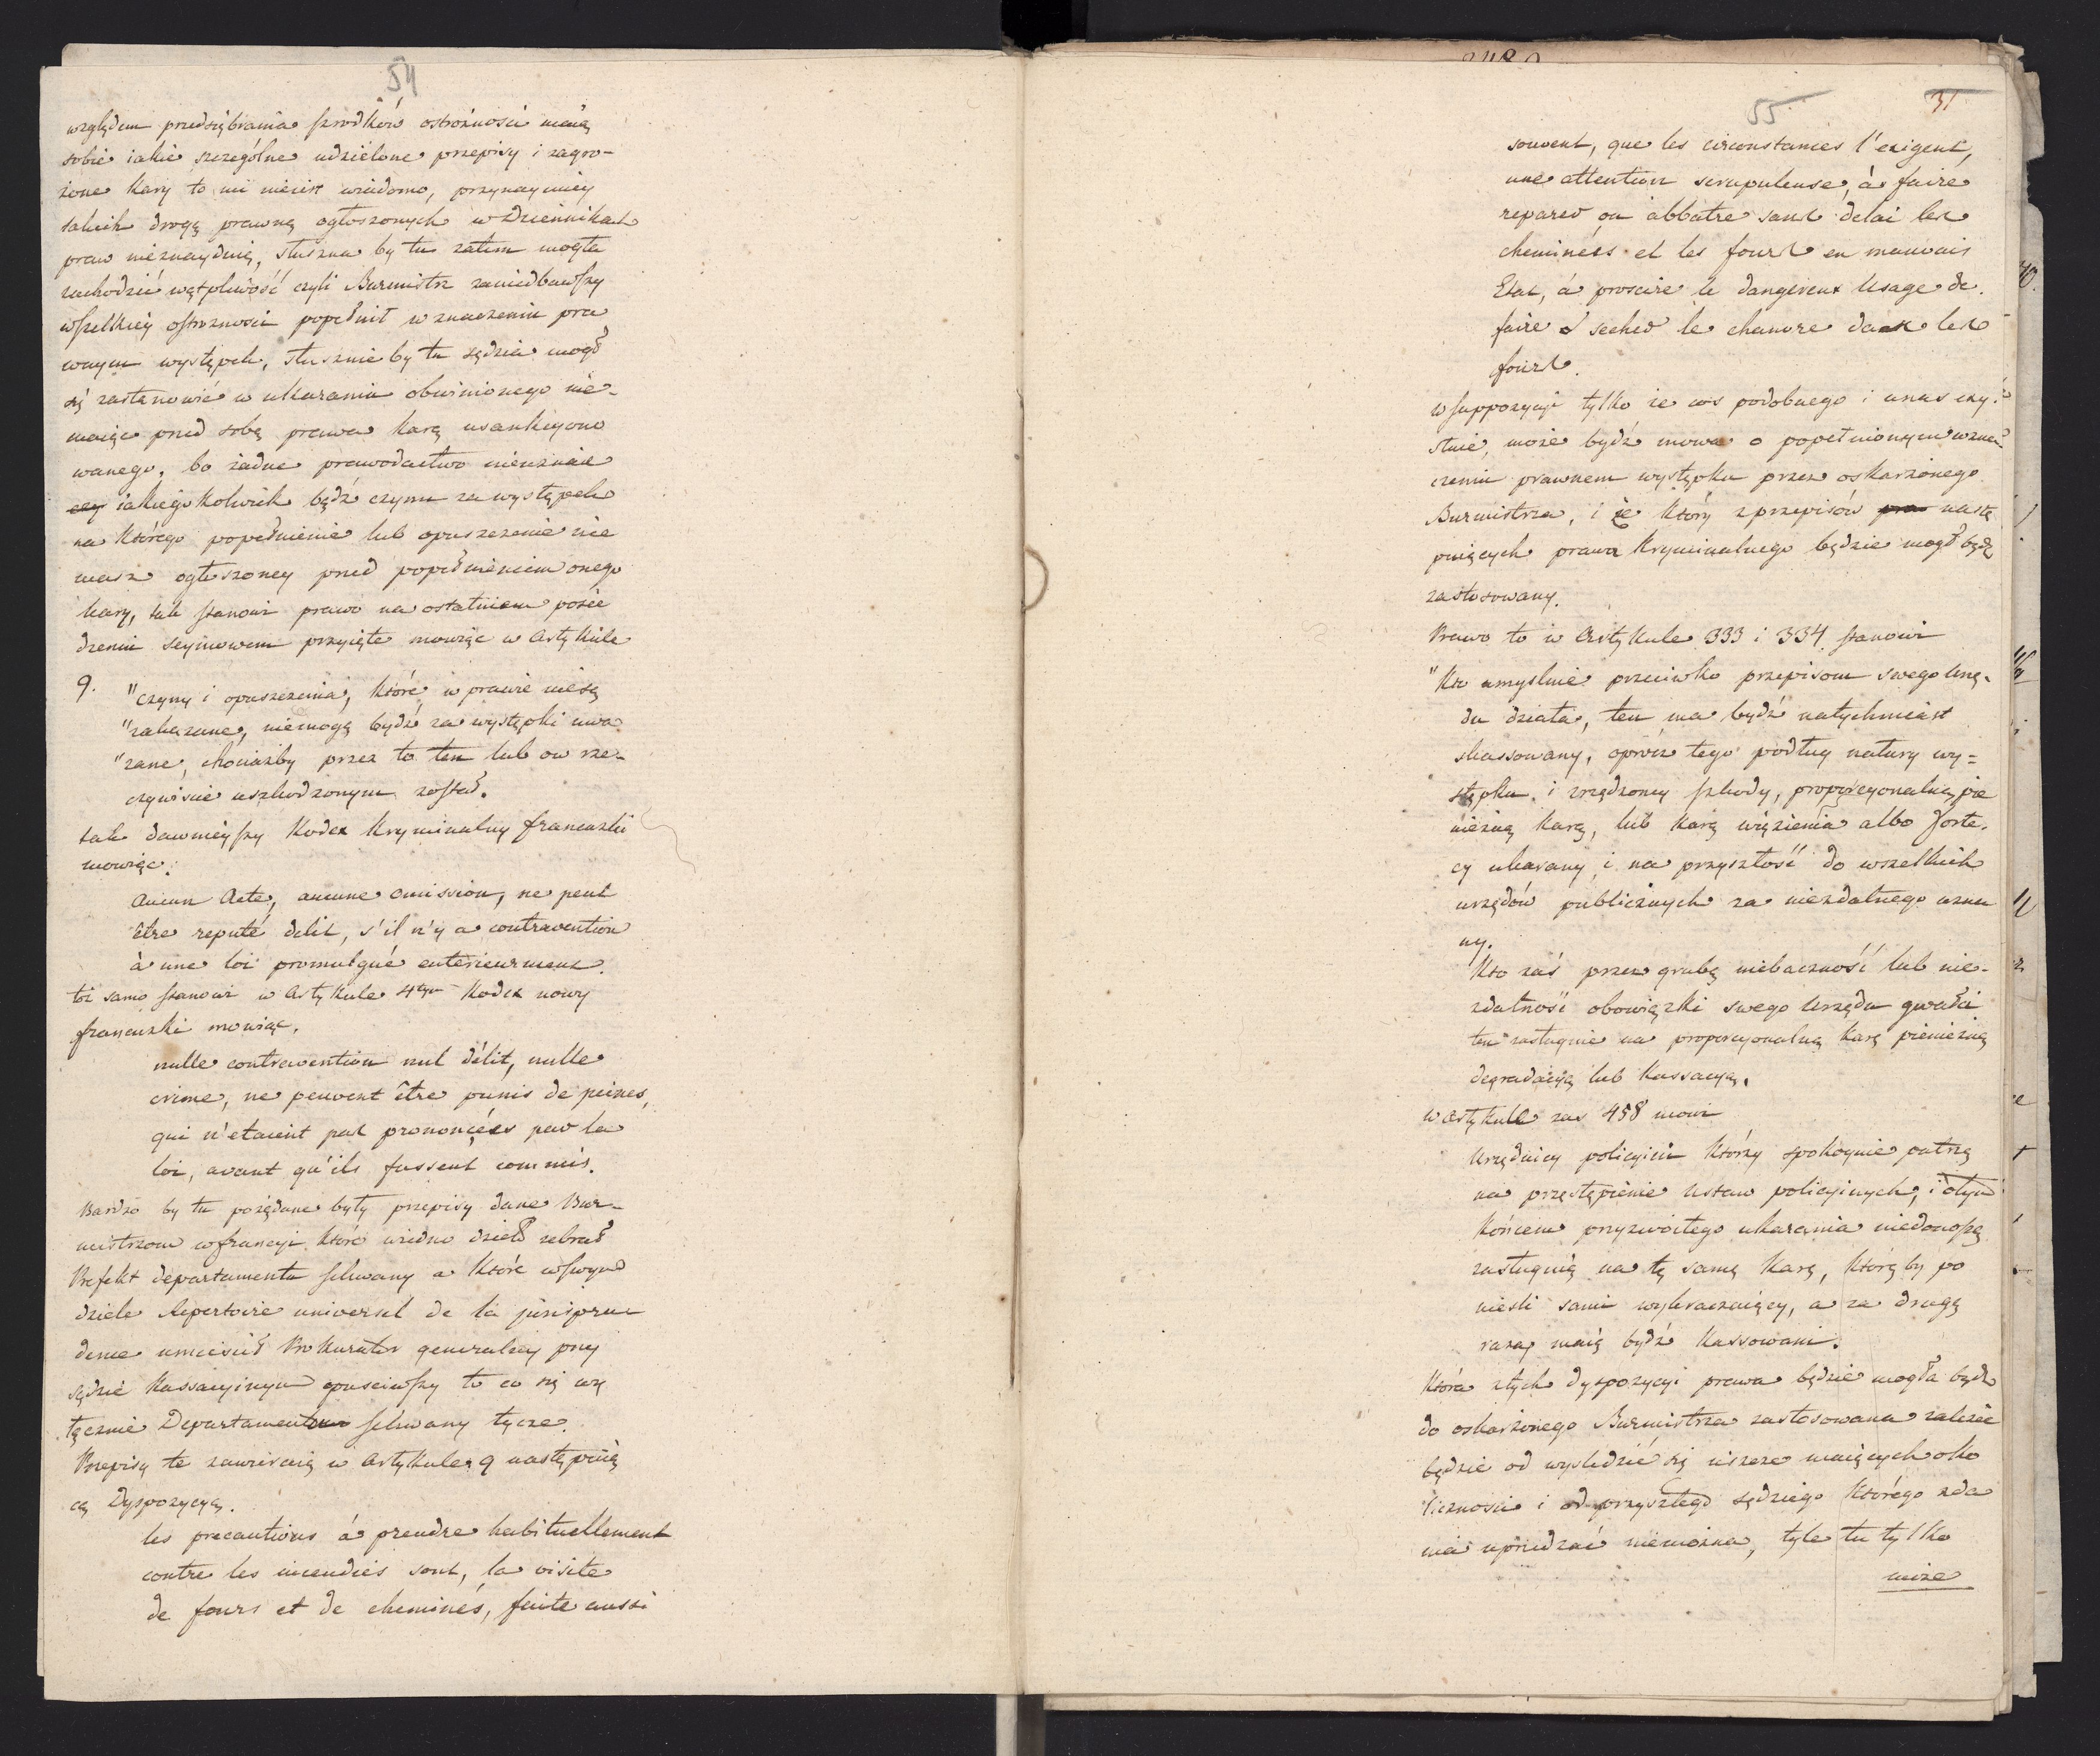 54
względem przedsiębrania szrodków ostrożnosci maią
sobie iakie szczególne udzielone przepisy i zagro-
żone kary to mi nieiest wiadomo, przynaymniéy
takich drogą prawną ogłoszonych w Dziennikach
praw nieznayduię, słuszna by tu zatem mogła
zachodzić wątpliwość czyli Burmistrz zaniedbawszy
wszelkiéy ostrożnosci popełnił w znaczeniu pra
wnym występek, słusznie by tu sędzia mogł
się zastanowić w ukaraniu obwinionego nie-
maiąc przed sobą prawa karą usankcyono
wanego, bo żadne prawodactwo nieuznaie
czy iakiegokolwiek bądź czynu za występek
na którego popełnienie lub opuszczenie nie
masz ogłoszoney przed popełnieniem onego
kary, tak stanowi prawo na ostatniem posie
dzeniu seymowem przyięte mowiąc w Artykule
9. "czyny i opuszczenia, które w prawie niesą
"zakazane, niemogą bydź za występki uwa
"żane, chociażby przez to ten lub ow rze-
czywiscie uszkodzonym został.
tak dawnieyszy Kodex Kryminalny francuzki
mowiąc:
Aucun Acte, aucune omission, ne peut
être reputé delit, s'il n'y a contravention
à une loi promulgué anterieurment.
toż samo stanowi w Artykule 4tym Kodex nowy
francuzki mowiąc,
nulle contravention nul délit, nulle
crime, ne peuvent être punis de peines,
qui n'etaient pas prononçées par la
loi, avant qu'ils fussent commis.
Bardzo by tu pożądane były przepisy dane Bur-
mistrzom w francyi które wiedno dzieło zebrał
Prefekt departamentu sekwany a które wswym
dziele Repertoire universel de la jurispru
dence umiescił Prokurator generalny przy
sądzie kassacyinym opusciwszy to co się wy
łącznie Departamentu sekwany tycze.
Przepisy te zawieraią w Artykule 9 następuią
cą Dyspozycyą.
les precautions á prendre habituellement
contre les incendies sont, la visite
de fours et de cheminés, faite aussi
55
31
souvent, que les circonstances l'exigent,
une attention scrupuleuse, á faire
reparer ou abbatre sans délai les
cheminées et les fours en mauvais
Etat, á proscire le dangereux Usage de
faire secher le chanvre dans les
fours.
w suppozycyi tylko że cos podobnego i unas exy-
stuie, może bydź mowa o popełnionym wzna
czeniu prawnem występku przez oskarżonego
Burmistrza, i że który z przepisów pra nastę
puiących prawa Kryminalnego będzie mogł bydź
zastosowany.
Prawo to w Artykule 333 i 334. stanowi
"Kto umyslnie przeciwko przepisom swego Urzę-
du działa, ten ma bydź natychmiast
skassowany, oprócz tego podług natury wy=
stępku i zrządzoney szkody, proporcyonalną pie
nieżną karą, lub karą więzienia albo forte-
cy ukarany, i na przyszłość do wszelkich
urzędów publicznych za niezdatnego uzna
ny.
Kto zaś przez grubą niebaczność lub nie-
zdatność obowiązki swego Urzędu gwałci
ten zasługuie na proporcyonalną karę pieniężną
degradacyą lub Kassacyą.
w Artykule zas 458 mowi
Urzędnicy policyini którzy spokoynie patrzą
na przestąpienie Ustaw policyinych, i otym
końcem przyzwoitego ukarania niedonoszą
zasługuią na tę samą karę, którą by po
niesli sami wykraczaiący, a za drugą
razą maią bydź Kassowani.
Która ztych dyspozycyi prawa będzie mogła bydź
do oskarżonego Burmistrza zastosowana zależeć
będzie od wysledzić się ieszcze maiących oko
licznosci i od przyszłego sędziego którego zda
nia uprzedzać niemożna, tyle tu tylko